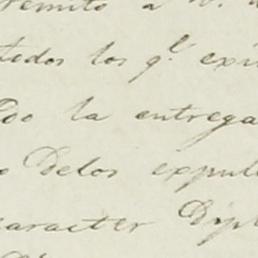 remito a V.
todos los q.e exi
do la entrega
o Delos expul
caracter Dipl